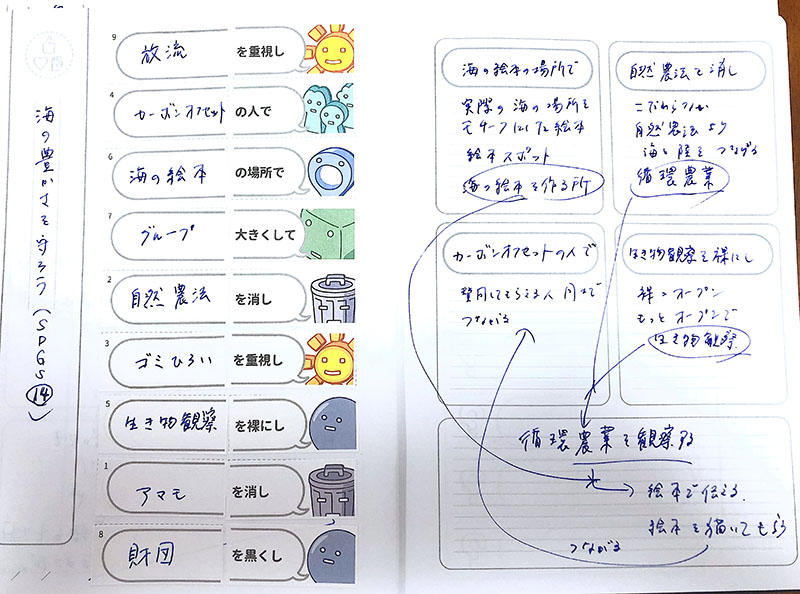 海の豊かさを守ろう(SDGS⑭)
9
放流 を重視し
4
カーボンオフセット の人で
6
海の絵本 の場所で
7
グループ 大きくして
2
自然農法 を消し
3
ゴミひろい を重視し
5
生き物観察 を裸にし
1
アマモ を消し
8
財団 を黒くし
海の絵本の場所で
実際の海の場所を
モチーフにした絵本
絵本スポット
海の絵本を作る所
自然農法を消し
こだわらずか
自然農法より
海と陸をつなげる
循環農業
カーボンオフセットの人で
賛同してもらえる人同士で
つながる
生き物観察を裸にし
裸=オープン
もっとオープンで
生き物観察
循環農業を観察する
絵本で伝える
絵本を描いてもらう
つながる